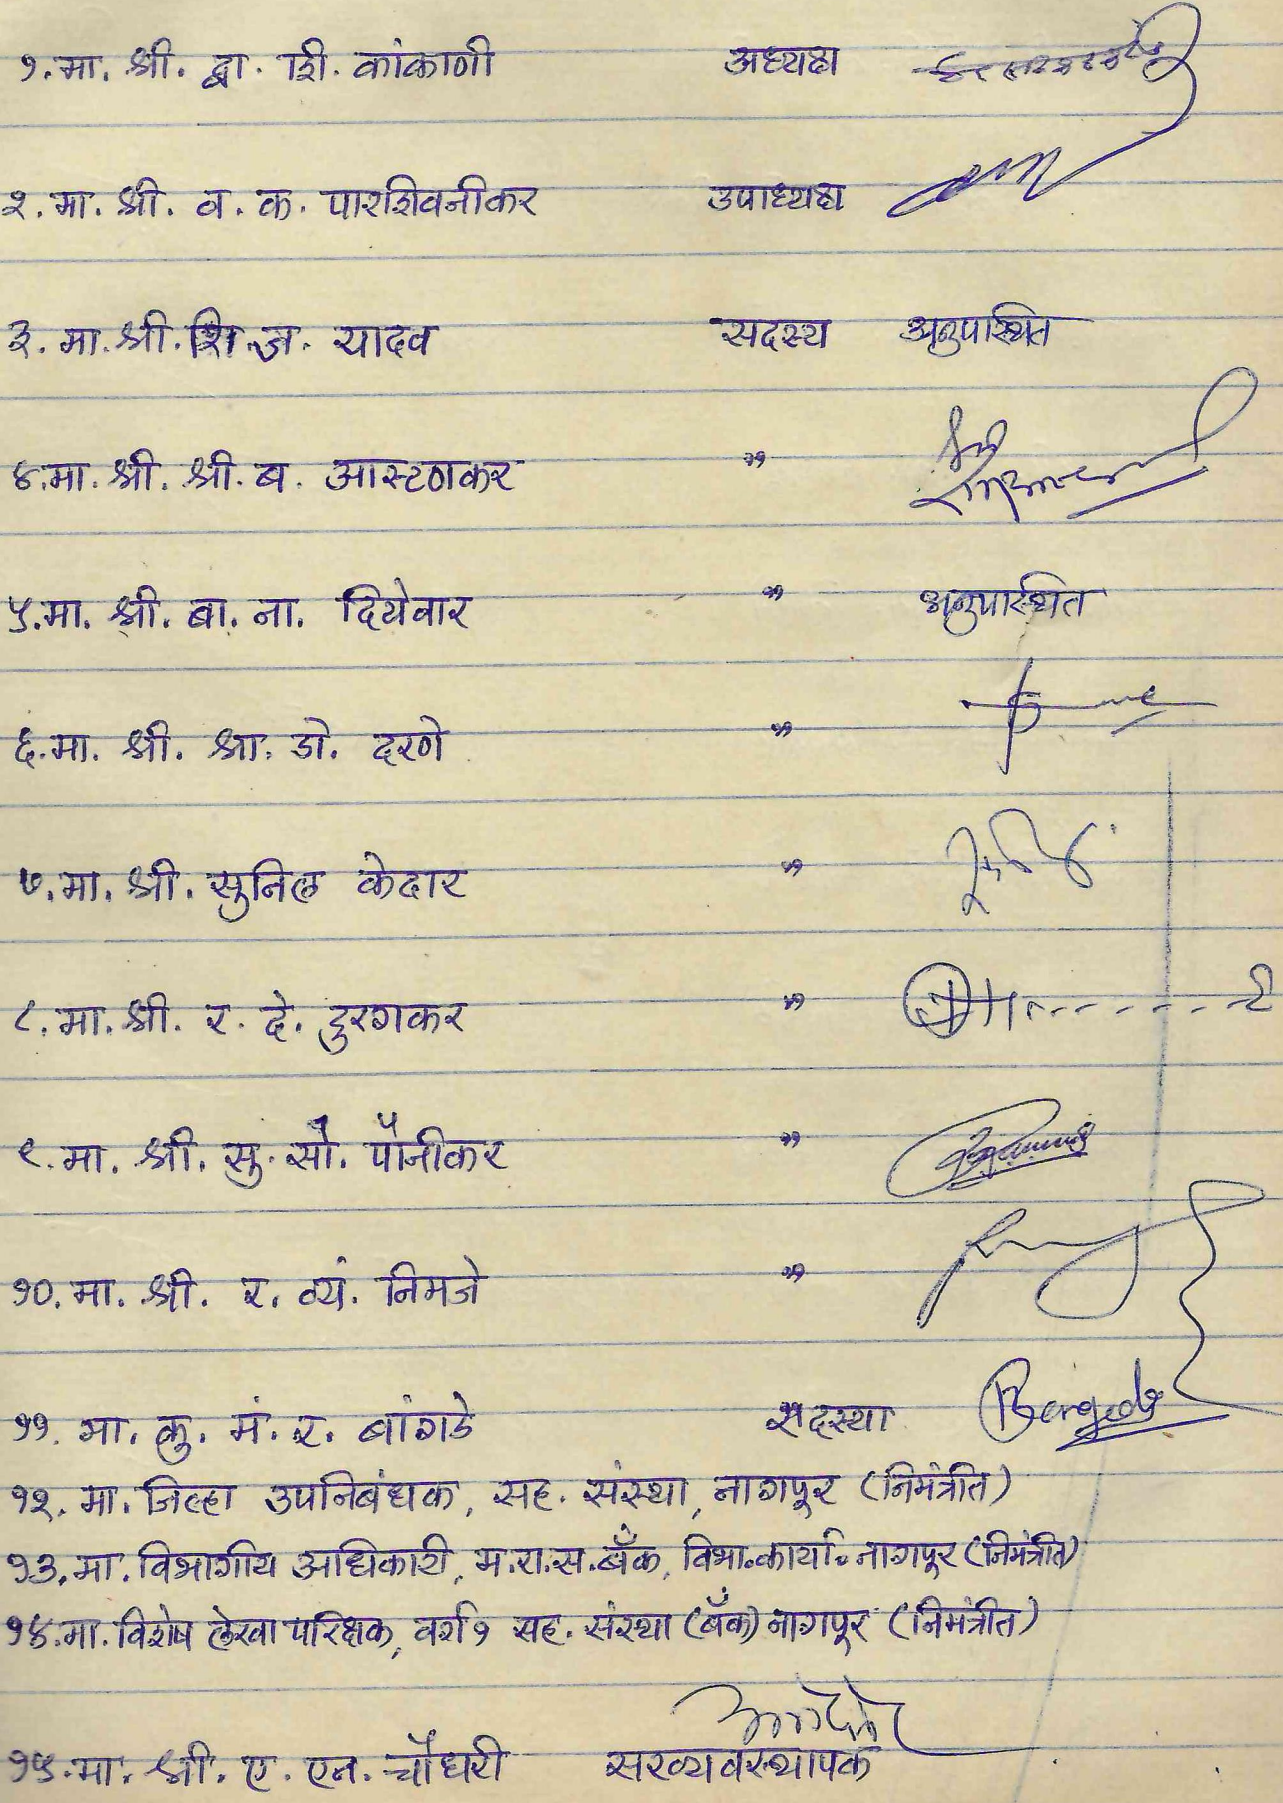 १. मा. श्री. द्वा. शि. कांकाणी अध्यक्ष
२. मा. श्री. व. क. पारशिवनीकर उपाध्यक्ष
३. मा. श्री. शि. ज. यादव सदस्य अनुपास्थित
४. मा. श्री. श्री. ब. आस्टणकर "
५. मा. श्री. बा. ना. दियेवार " अनुपास्थित
६. मा. श्री. श्रा. डो. दरणे "
७. मा. श्री. सुनिल केदार "
८. मा. श्री. र. दे. दुरगकर "
९. मा. श्री. सु. सो. पौनीकर "
१०. मा. श्री. र. व्यं. निमजे "
११. मा. कु. मं. र. बांगडे सदस्या Bangade
१२. मा. जिल्हा उपनिबंधक, सह. संस्था, नागपूर (निमंत्रीत)
१३. मा. विभागीय आधिकारी, म.रा.स. बँक, विभा. कार्या. नागपूर (निमंत्रीत)
१४. मा. विशेष लेखा परिक्षक, वर्ग १ सह. संस्था (बँक) नागपूर (निमंत्रीत)
१५. मा. श्री. ए. एन. चौधरी सरव्यवस्थापक